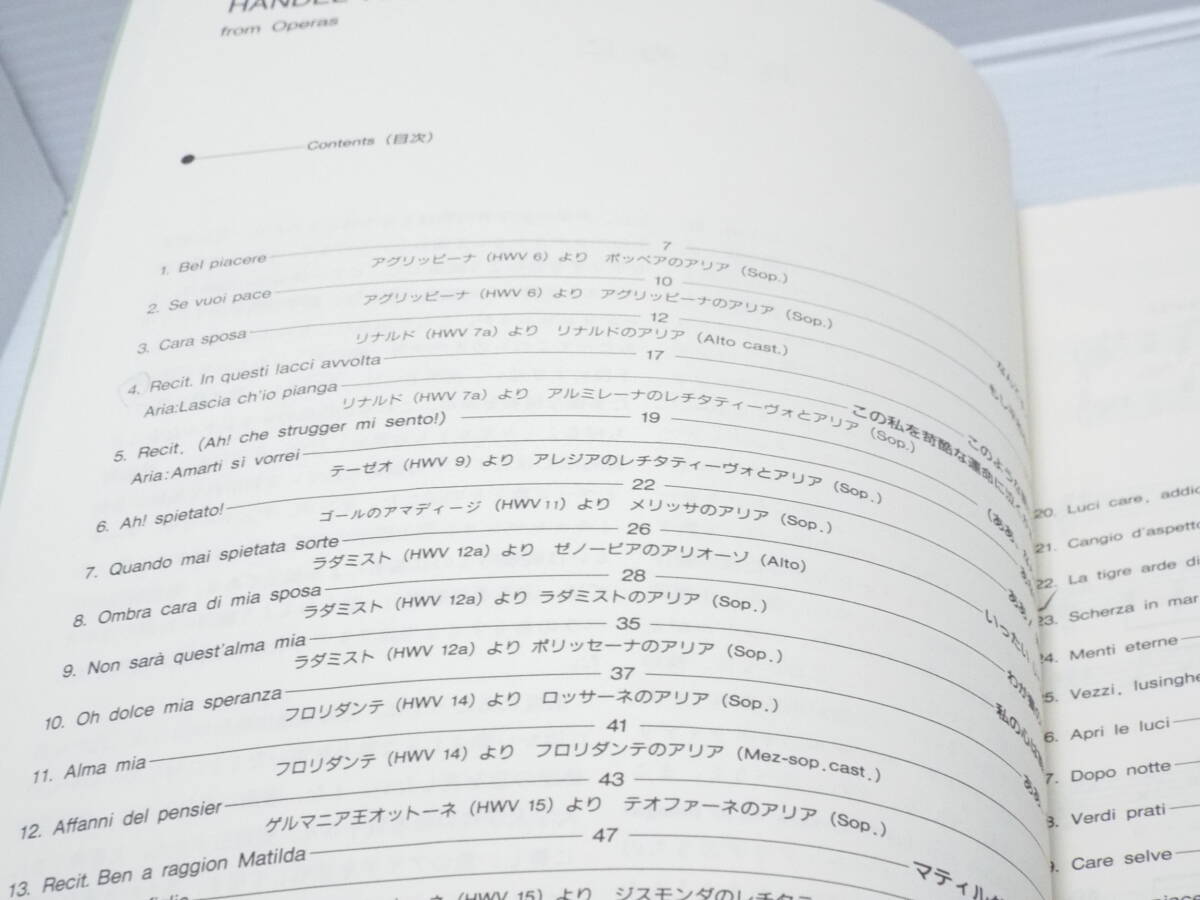 HANDEL
from Operas
Contents (目次)
1. Bel piacere 7
アグリッピーナ (HWV 6) より ポッペアのアリア (Sop.)
2. Se vuoi pace 10
アグリッピーナ (HWV 6) より アグリッピーナのアリア (Sop.)
3. Cara sposa 12
リナルド (HWV 7a) より リナルドのアリア (Alto cast.)
4. Recit. In questi lacci avvolta 17
このような
Aria:Lascia ch'io pianga
この私を苛酷な運命に泣く
リナルド (HWV 7a) より アルミレーナのレチタティーヴォとアリア (Sop.)
5. Recit. (Ah! che strugger mi sento!) 19
Aria:Amarti si vorrei
テーゼオ (HWV 9) より アレジアのレチタティーヴォとアリア (Sop.)
6. Ah! spietato! 22
ゴールのアマディージ (HWV 11) より メリッサのアリア (Sop.)
7. Quando mai spietata sorte 26
いったい
ラダミスト (HWV 12a) より ゼノービアのアリオーソ (Alto)
8. Ombra cara di mia sposa 28
ラダミスト (HWV 12a) より ラダミストのアリア (Sop.)
9. Non sarà quest'alma mia 35
私の心は
ラダミスト (HWV 12a) より ポリッセーナのアリア (Sop.)
10. Oh dolce mia speranza 37
フロリダンテ (HWV 14) より ロッサーネのアリア (Sop.)
11. Alma mia 41
フロリダンテ (HWV 14) より フロリダンテのアリア (Mez-sop.cast.)
12. Affanni del pensier 43
ゲルマニア王オットーネ (HWV 15) より テオファーネのアリア (Sop.)
13. Recit. Ben a raggion Matilda 47
マティルダ
(HWV 15) より ジスモンダのレチタ
20. Luci care, addio
21. Cangio d'aspetto
22. La tigre arde di
23. Scherza in mar
24. Menti eterne
5. Vezzi, lusinghe
6. Apri le luci
7. Dopo notte
8. Verdi prati
9. Care selve